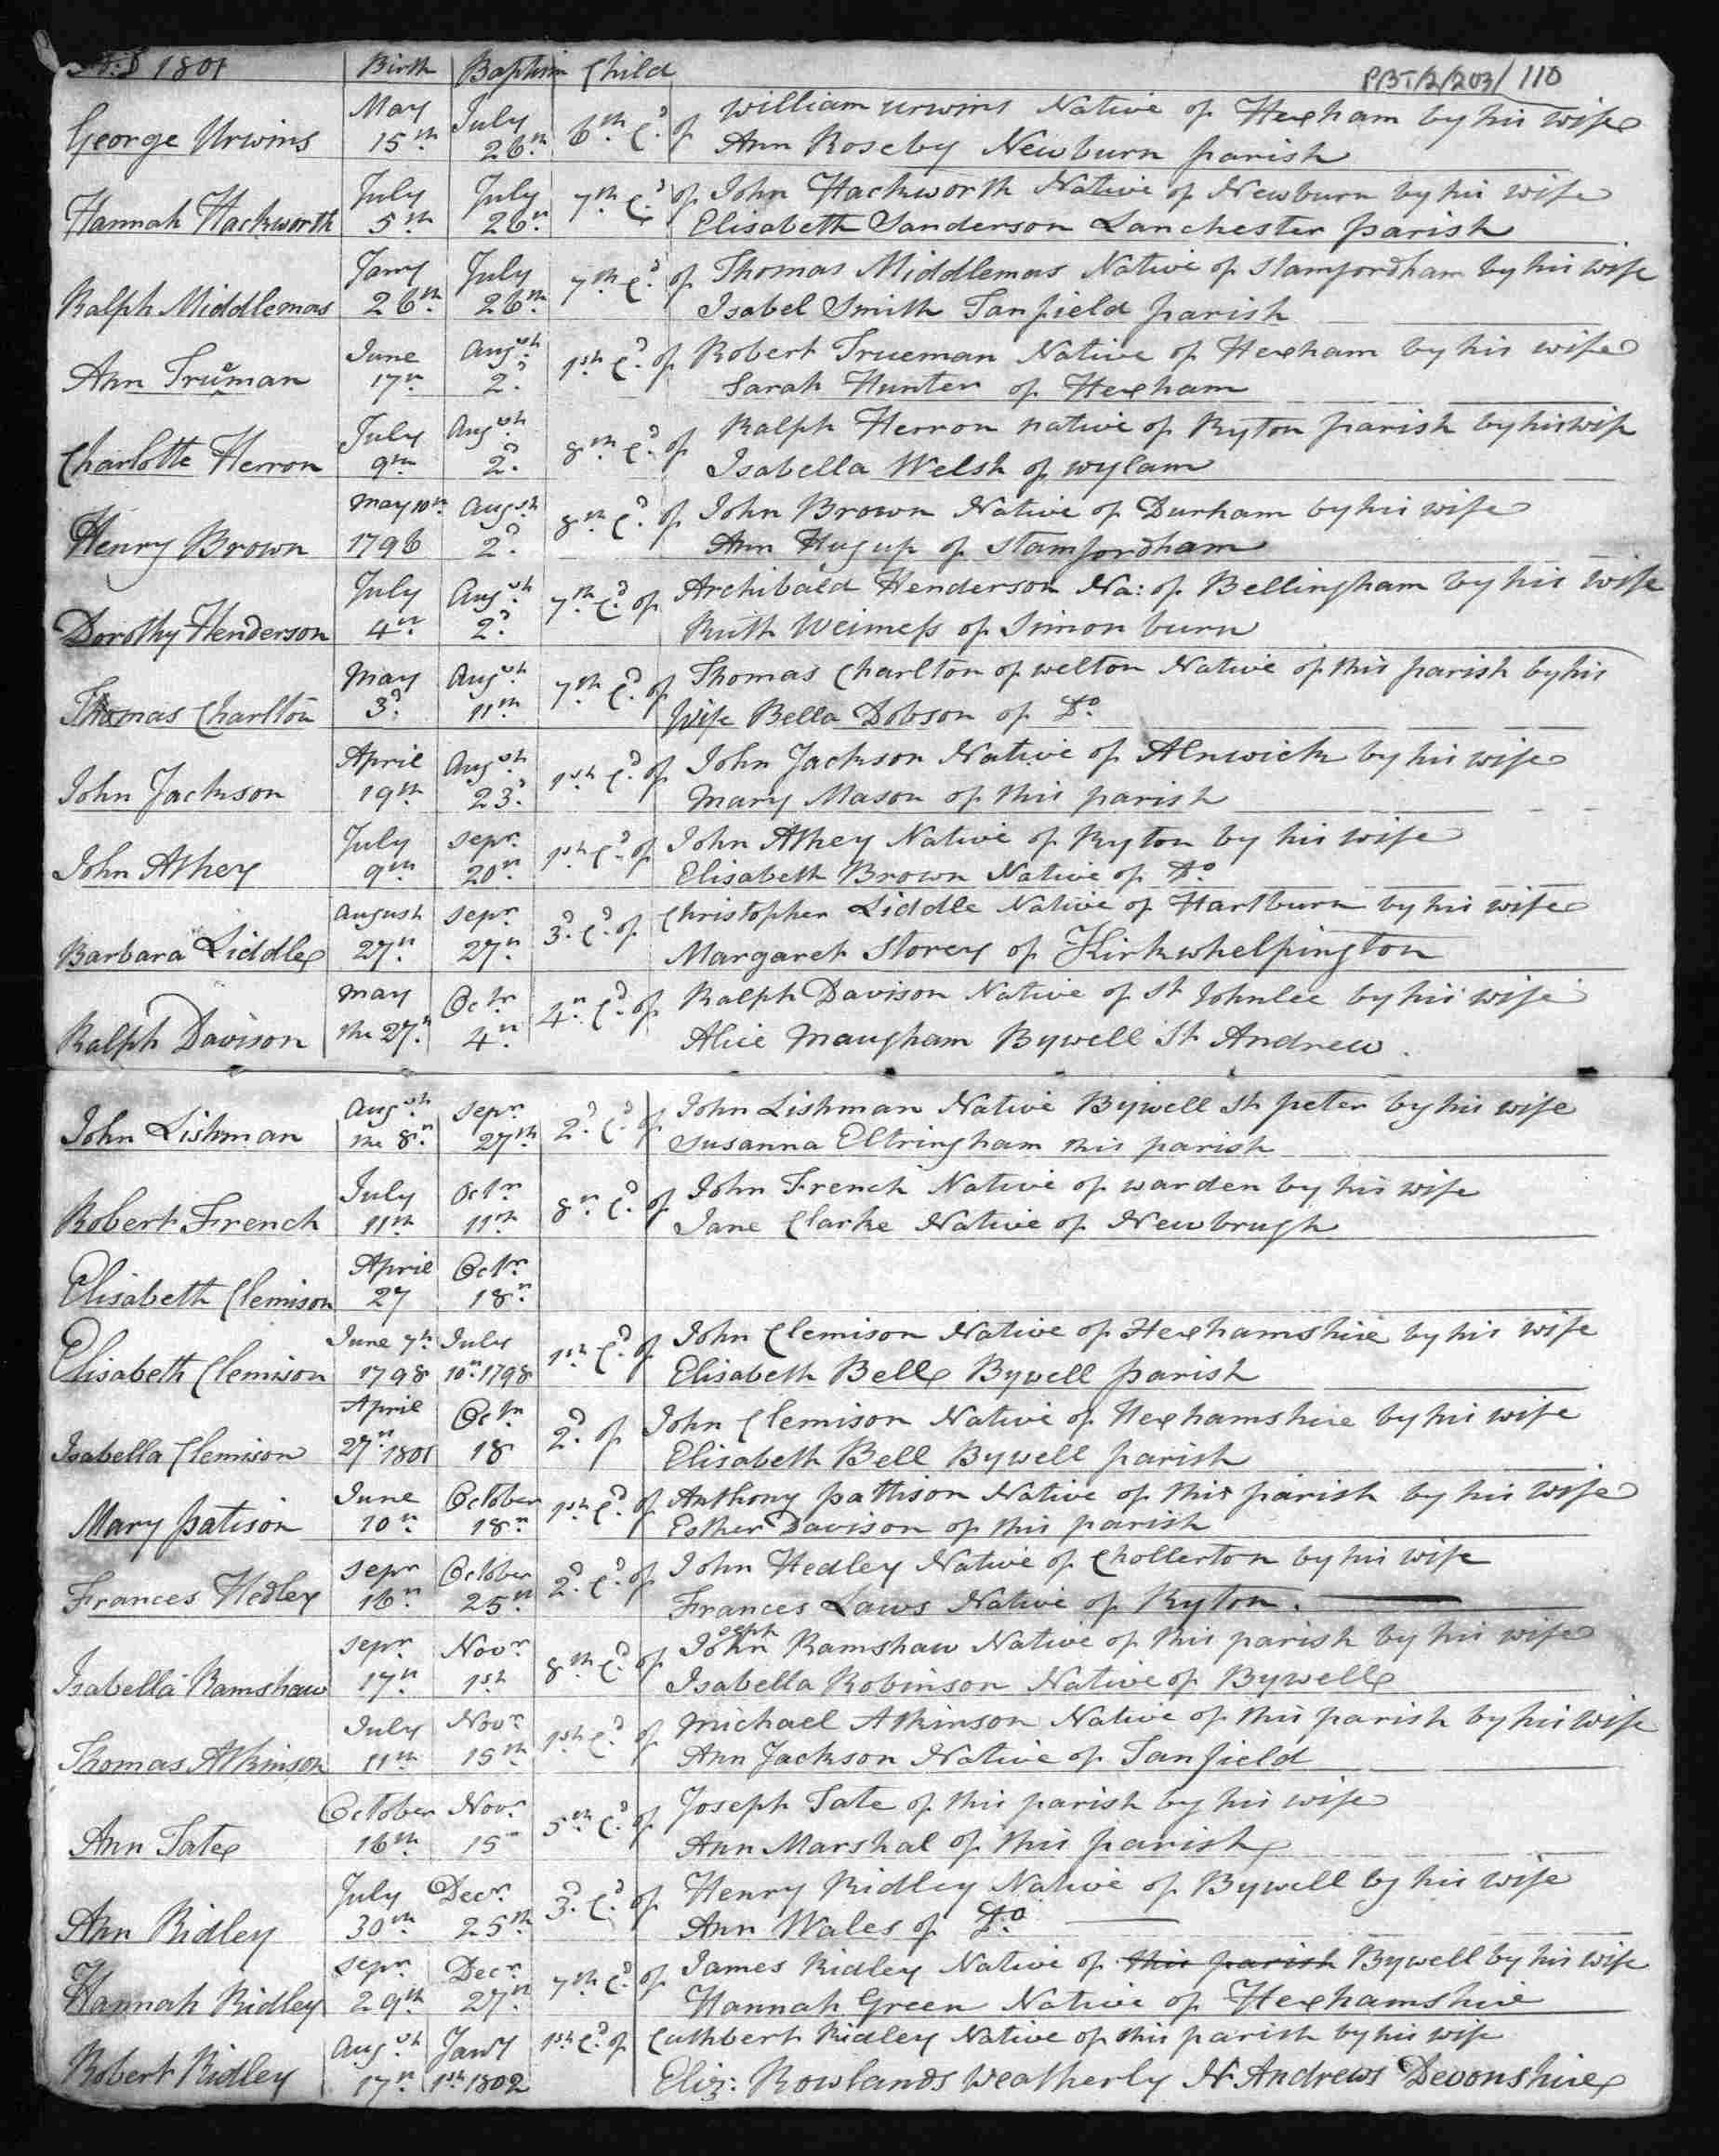 A:D 1801 Birth Baptism Child PBT/2/203/110
George Urwins May 15th July 26th 6th C.d of William Urwins Native of Hexham by his wife
Ann Roseby Newburn parish
Hannah Hackworth July 5th July 26th 7th C.d of John Hackworth Native of Newburn by his wife
Elisabeth Sanderson Lanchester parish
Ralph Middlemas Jany 26th July 26th 7th C.d of Thomas Middlemas Native of Stamfordham by his wife
Isabel Smith Tanfield parish
Ann Truman June 17th Augst 2d 1st C.d of Robert Trueman Native of Hexham by his wife
Sarah Hunter of Hexham
Charlotte Herron July 9th Augst 2d 8th C.d of Ralph Herron native of Ryton parish by his wife
Isabella Welsh of Wylam
Henry Brown May 10th 1796 Augst 2d 8th C.d of John Brown Native of Durham by his wife
Ann Hugup of Stamfordham
Dorothy Henderson July 4th Augst 2d 7th C.d of Archibald Henderson Na: of Bellingham by his wife
Ruth Weimess of Simon burn
Thomas Charlton May 3d Augst 11th 7th C.d of Thomas Charlton of Welton Native of this parish by his
Wife Bella Dobson of Do
John Jackson April 19th Augst 23d 1st C.d of John Jackson Native of Alnwick by his wife
Mary Mason of this parish
John Athey July 9th Sepr 20th 1st C.d of John Athey Native of Ryton by his wife
Elisabeth Brown Native of Do
Barbara Liddle August 27th Sepr 27th 3d C.d of Christopher Liddle Native of Hartburn by his wife
Margaret Storey of Kirkwhelpington
Ralph Davison May the 27th Octr 4th 4th C.d of Ralph Davison Native of St Johnlee by his wife
Alice Maugham Bywell St Andrew.
John Lishman Augst the 8th Sepr 27th 2d C.d of John Lishman Native Bywell St peter by his wife
Susanna Eltringham this parish
Robert French July 11th Octr 11th 8th C.d of John French Native of warden by his wife
Jane Clarke Native of Newbrugh
Elisabeth Clemison April 27 Octr 18th
Elisabeth Clemison June 7th 1798 July 10th 1798 1st C.d of John Clemison Native of Hexhamshire by his wife
Elisabeth Bell Bywell parish
Isabella Clemison April 27th 1801 Octr 18 2d of John Clemison Native of Hexhamshire by his wife
Elisabeth Bell Bywell parish
Mary patison June 10th October 18th 1st C.d of Anthony pattison Native of this parish by his wife
Esther Davison of this parish
Frances Hedley Sepr 16th October 25th 2d C.d of John Hedley Native of Chollerton by his wife
Frances Laws Native of Ryton.
Isabella Ramshaw Sepr 17th Novr 1st 8th C.d of John seph Ramshaw Native of this parish by his wife
Isabella Robinson Native of Bywell
Thomas Atkinson July 11th Novr 15th 1st C.d of Michael Atkinson Native of this parish by his wife
Ann Jackson Native of Tanfield
Ann Tate October 16th Novr 15th 5th C.d of Joseph Tate of this parish by his wife
Ann Marshal of this parish
Ann Ridley July 30th Decr 25th 3d C.d of Henry Ridley Native of Bywell by his wife
Ann Wales of Do
Hannah Ridley Sepr 29th Decr 27th 7th C.d of James Ridley Native of this parish Bywell by his wife
Hannah Green Native of Hexhamshire
Robert Ridley Augst 17th Jany 1st 1802 1st C.d of Cuthbert Ridley Native of this parish by his wife
Eliz: Rowlands Weatherly N. Andrews Devonshire